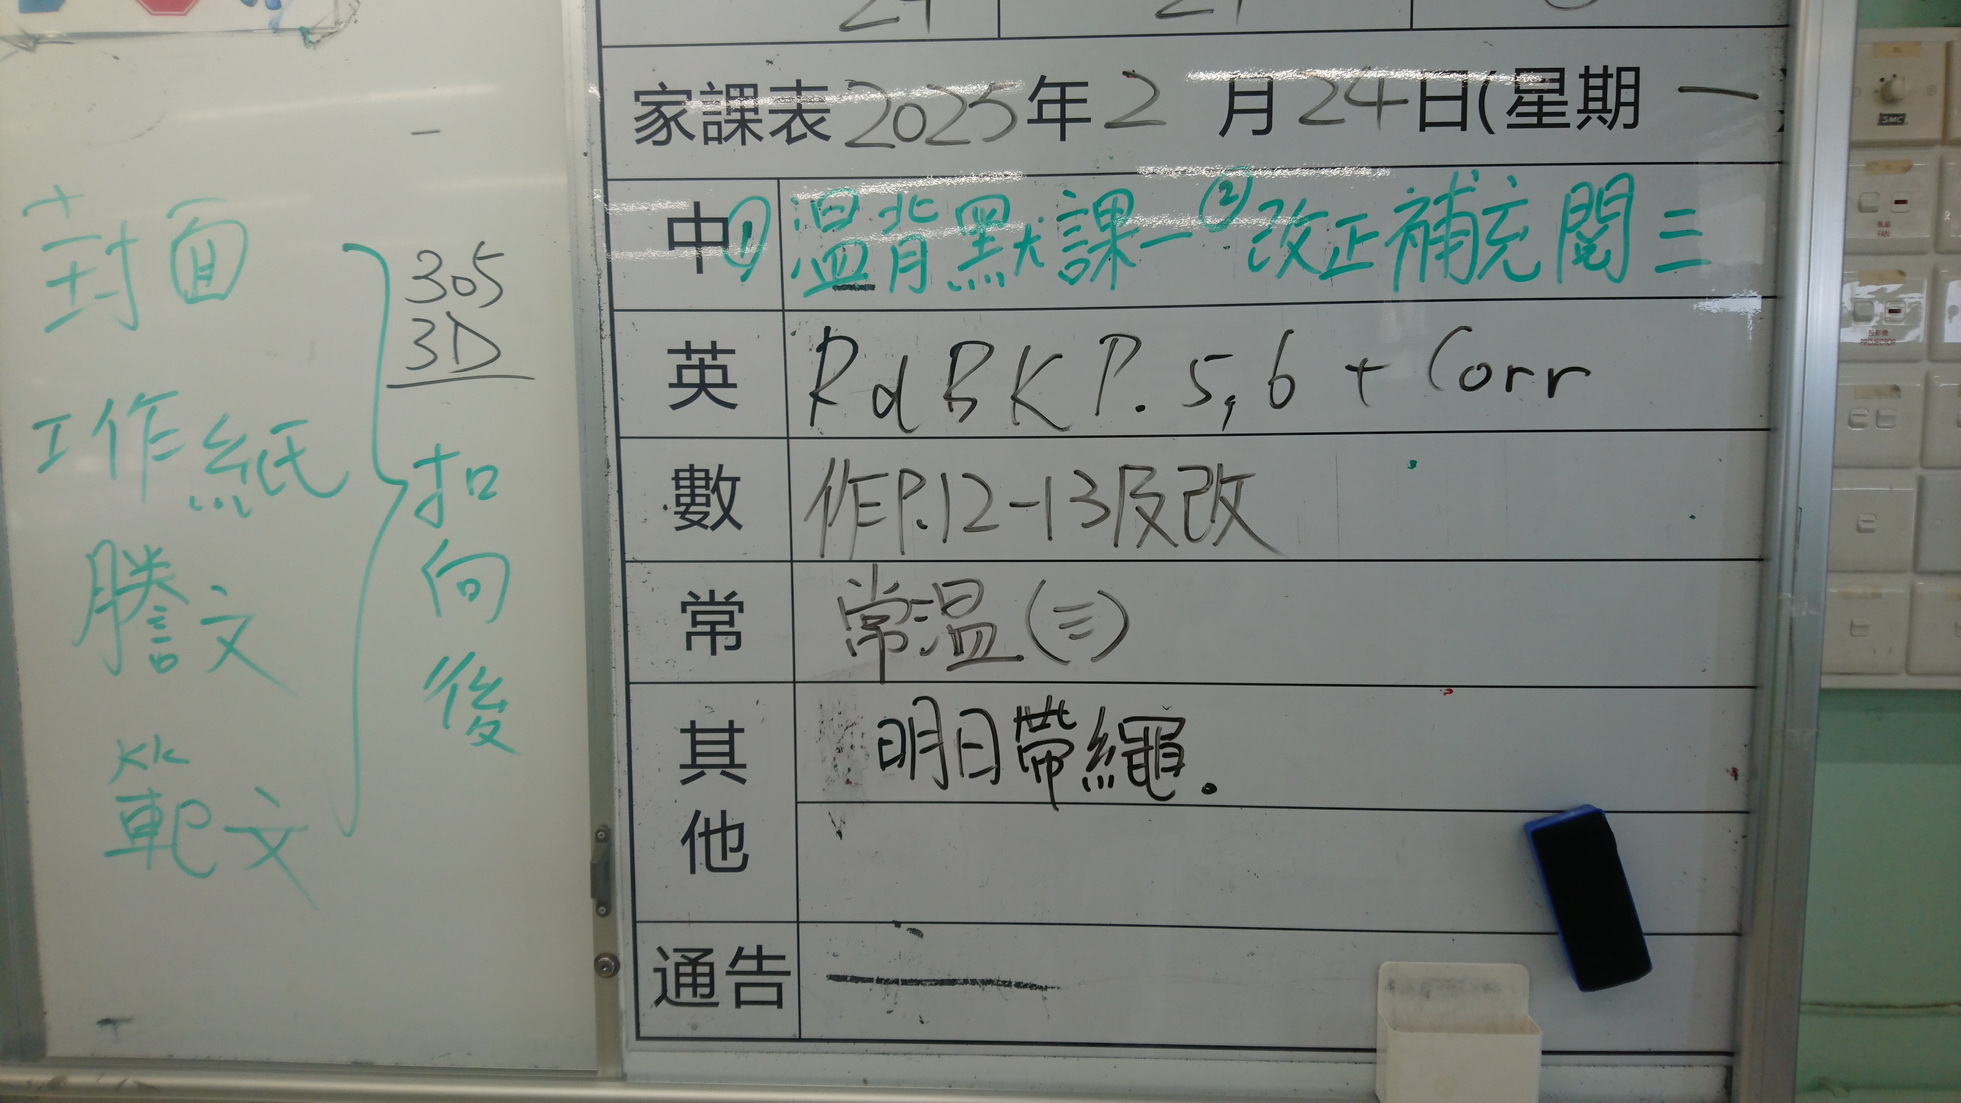 封面
工作紙
謄文
範文
305
3D
扣
向
後
家課表2025年2月24日(星期一
中 ①溫背默課一②改正補充閱三
英 Rd BK P. 5,6 + Corr
數 作P.12-13及改
常 常溫(三)
其他 明日帶繩.
通告 —
SMC
FAN
PROJECTOR